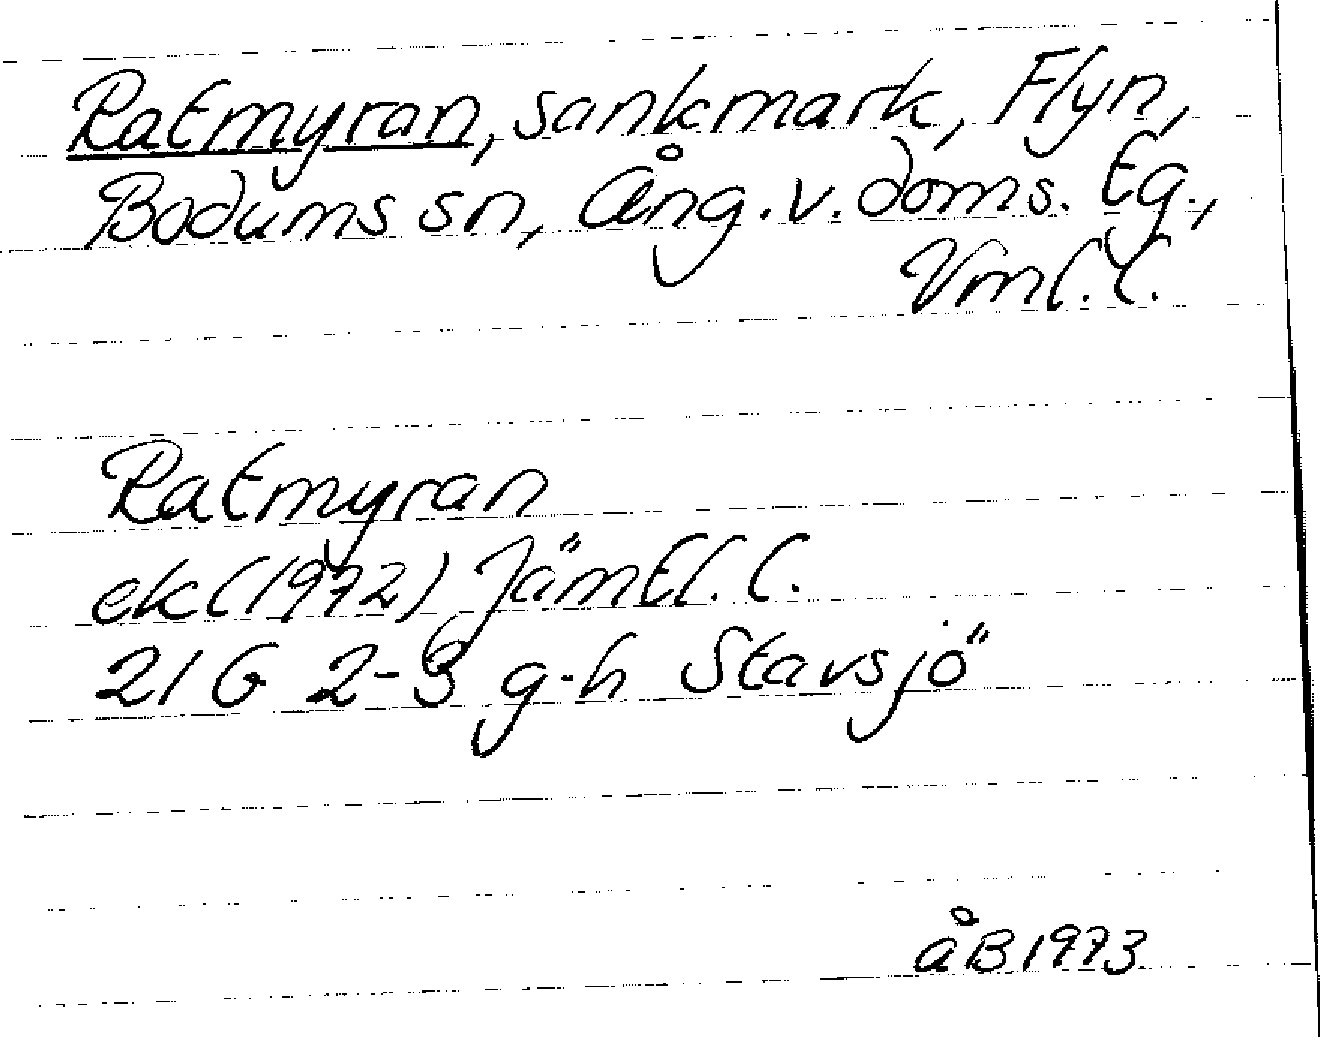 Ratmyran, sankmark, Flyn,
Bodums sn, Ång. v. doms. tg.,
Vnl. l.
Ratmyran
ek (1972) Jämtl. l.
21 G 2-3 g-h Stavsjö
åB 1973